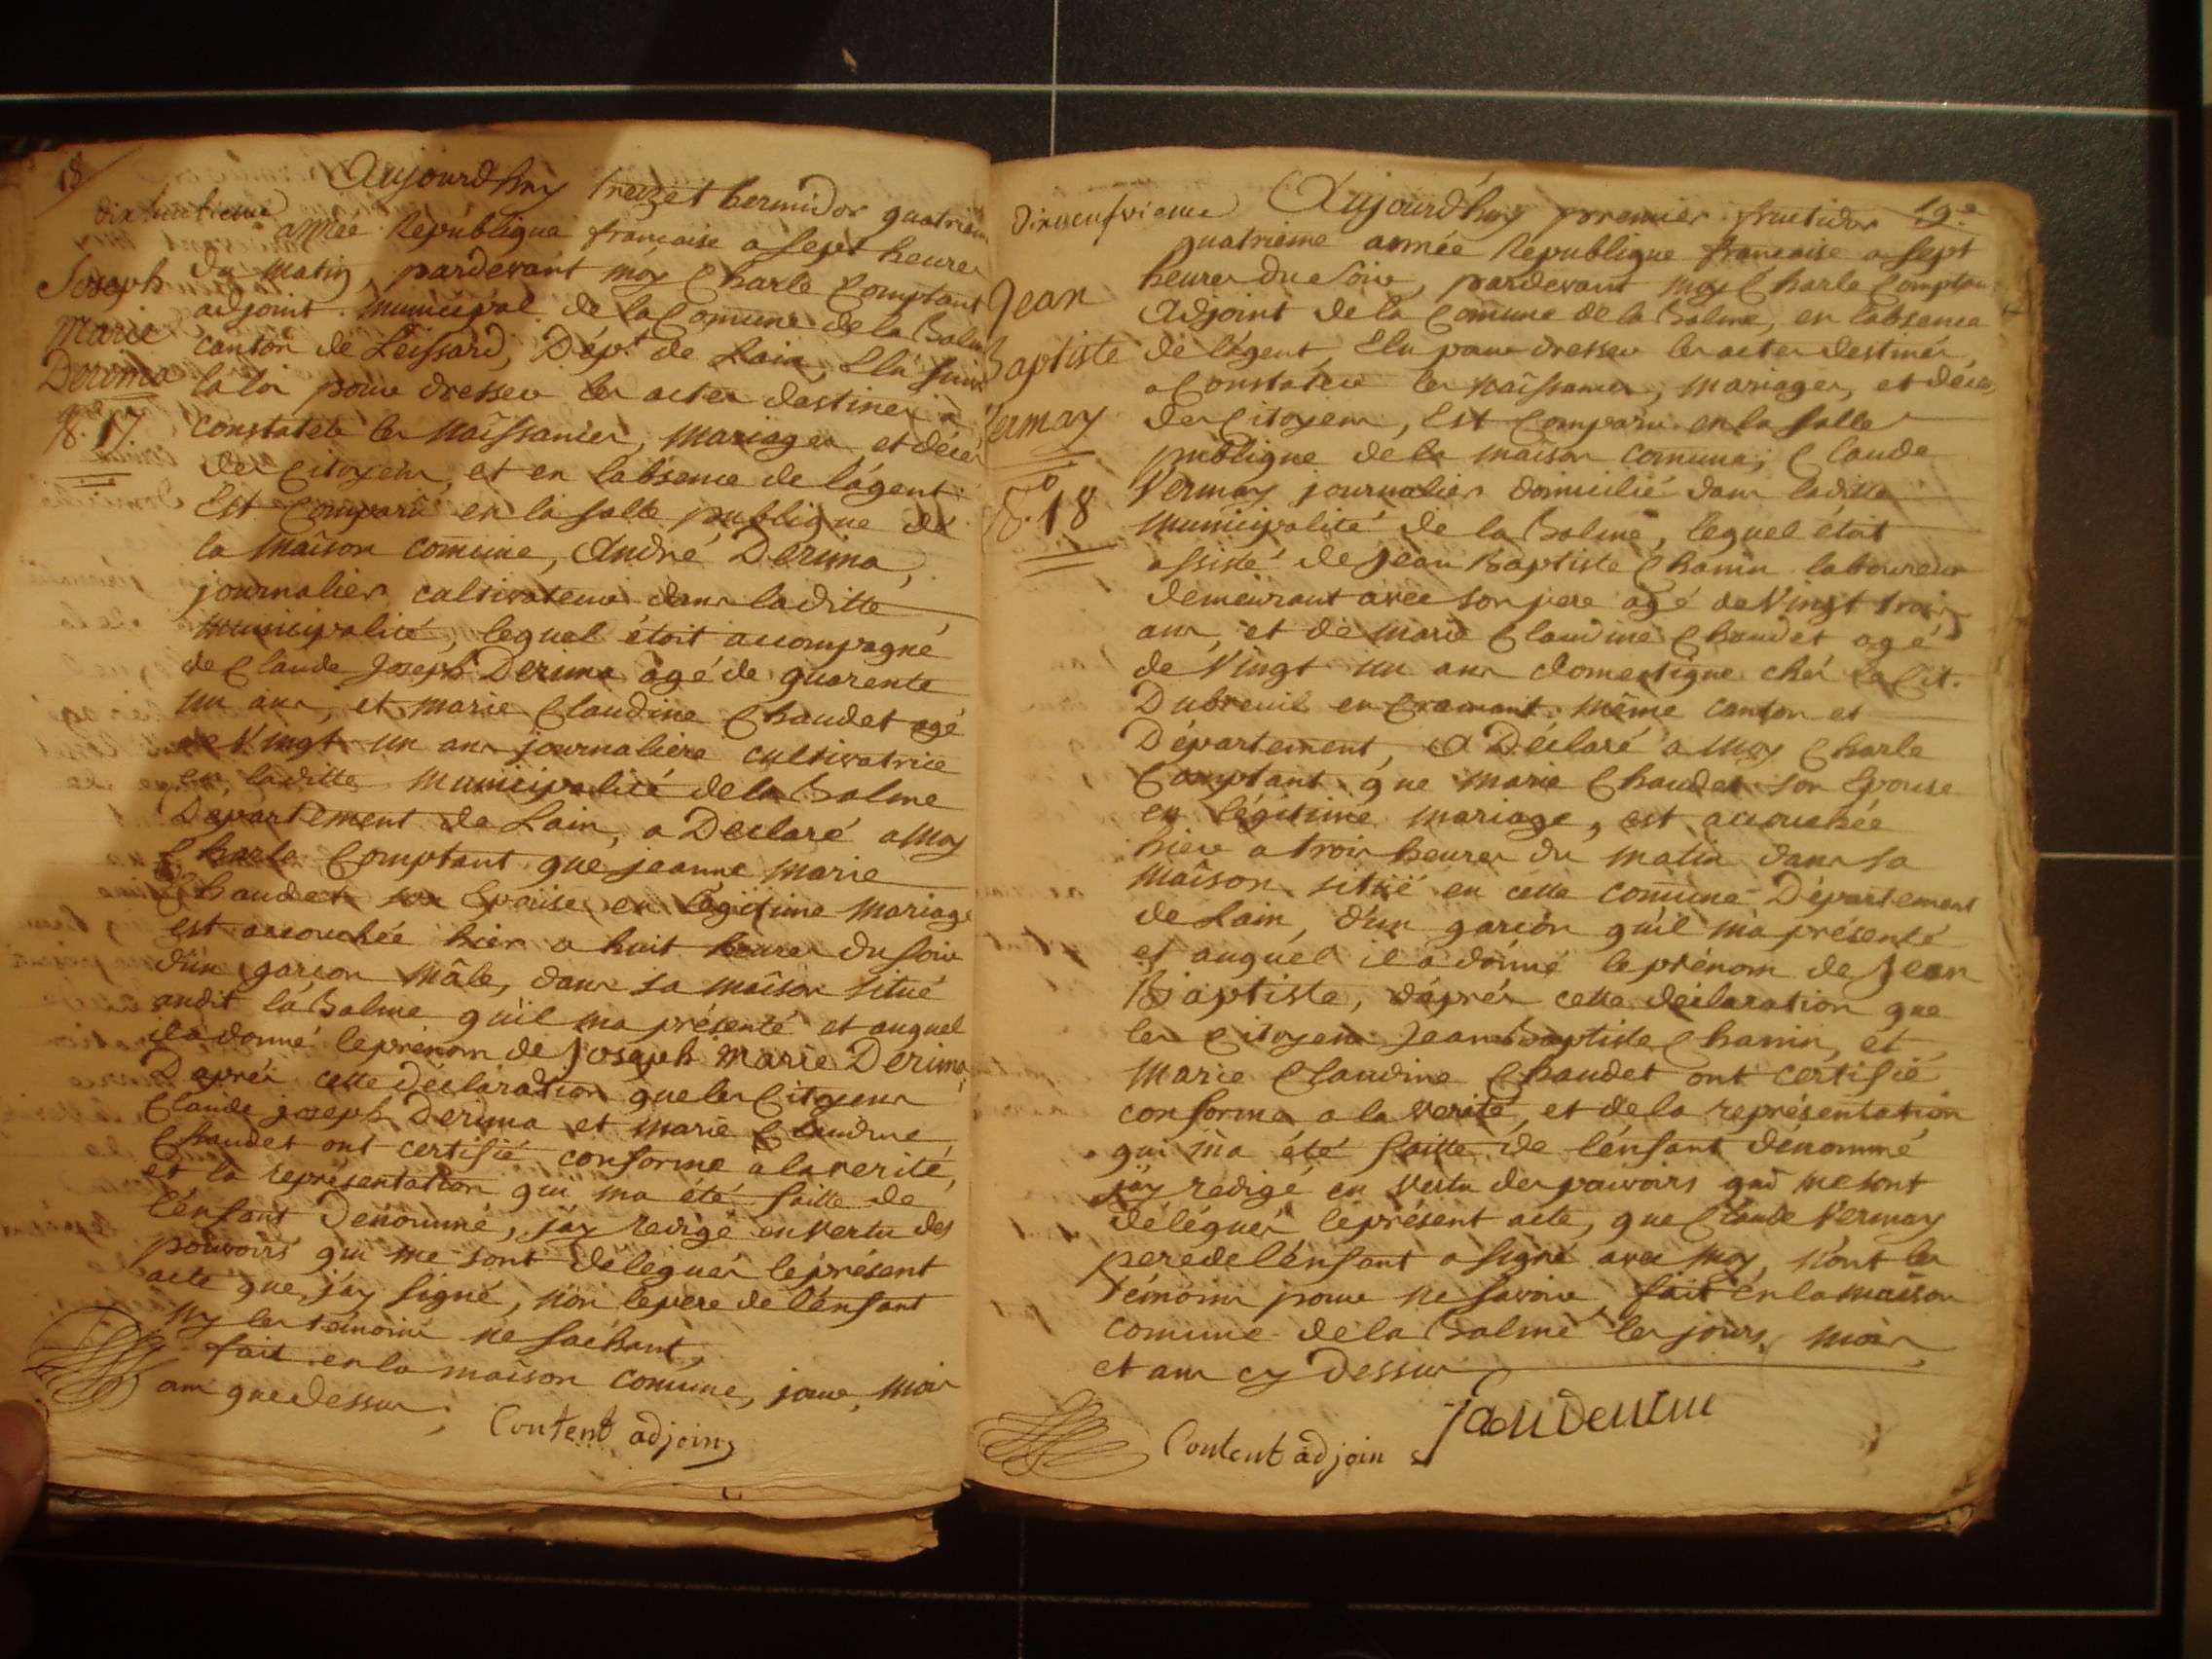 18
dixhuitieme
Joseph
Marie
Derima
N.° 17
Aujourdhuy treize thermidor quatrieme
année Republique francaise a sept heures
du matin, pardevant moy Charle Comptant
adjoint municipal de la Comune de la Balme
canton de Leissard, Dép.t de Lain, Elu suiv
la loi pour dresser les actes destinés a
constatéte les naissances, mariages et décès
des Citoyens, et en labsence de lágent
Est Comparû en la salle publique dé
la maison comune, André Derima,
journalier cultivateur dans laditte
municipalité, lequel étoit accompagné
de Claude Joseph Derima agé de quarente
un ans, et marie Claudine Chaudet agé
de Vingt un ans journaliere cultivatrice
en laditte municipalité de la Balme
Departement de Lain, a Declaré a moy
Charle Comptant que jeanne marie
Chaudet son Epouse en légitime mariage
est accouchée hier a huit heures du soir
d'un garçon mâle, dans sa maison situé
audit la Balme qúil ma présenté et auquel
il a donné le prénom de Joseph Marie Derima
Daprés cette déclaration que les Citoyens
Claude joseph Derima et marie Claudine
Chaudet ont certifié conforme a la verité,
et la représentation qui ma été faitte de
lénfant Denommé, jáy redigé en vertu des
pouvoirs qui me sont délégués le présent
acte que jáy signé, non le pere de lénfant
ny les témoins ne sachant,
fait en la maison comune, jour, mois
ans que dessus;
Content adjoin
19.e
dixneufvieme
Jean
Baptiste
Vermay
N.° 18
Aujourd'huy premier fructidor
quatrieme année Republique francaise a sept
heures du soir, pardevant moy Charle Comptant
Adjoint de la Comune de la Balme, en labsence
de lágent, Elu pour dresser les actes destinés,
a Constater les naissances, mariages, et décès
des Citoyens, Est Comparu en la salle
publique de la maison comune; Claude
Vermay journalier domicilié dans laditte
municipalité de la Balme, lequel étoit
assisté de Jean Baptiste Chanin laboureur
demeurant avec son pere agé de Vingt trois
ans, et de marie Claudine Chaudet agé
de Vingt un ans domestique chés la Cit.
Dubreuil en Cramant même canton et
Département, A Déclaré a moy Charle
Comptant que marie Chaudet son Epouse
en légitime mariage, est accouchée
hiere a trois heures du matin dans sa
maison situé en cette comune Département
de Lain, d'un garcon qúil ma présenté
et auquel il a donné le prénom de Jean
Baptiste, dáprés cette déclaration que
les Citoyens Jean Baptiste Chanin, et
Marie Claudine Chaudet ont certifié
conforme a la verité, et de la représentation
qui ma été faitte de lénfant dénommé
jáy redigé en vertu des pouvoirs qui me sont
délégués le présent acte, que Claude Vermay
pere de lénfant a signé avec moy, non les
témoins pour ne savoir fait en la maison
comune de la Balme les jours, mois
et ans cy dessus
Content adjoin